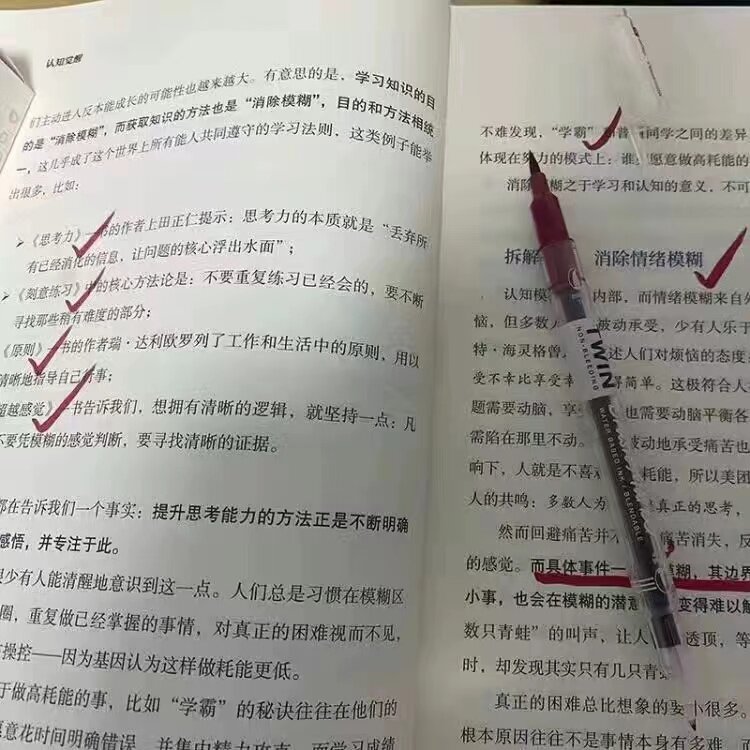 认知觉醒
们主动进入反本能成长的可能性也越来越大。有意思的是，学习知识的目
的是“消除模糊”，而获取知识的方法也是“消除模糊”，目的和方法相统
一，这几乎成了这个世界上所有能人共同遵守的学习法则，这类例子能举
出很多，比如：
➢《思考力》一书的作者上田正仁提示：思考力的本质就是“丢弃所
有已经消化的信息，让问题的核心浮出水面”；
➢《刻意练习》中的核心方法论是：不要重复练习已经会的，要不断
寻找那些稍有难度的部分；
《原则》一书的作者瑞·达利欧罗列了工作和生活中的原则，用以
清晰地指导自己行事；
超越感觉》一书告诉我们，想拥有清晰的逻辑，就坚持一点：凡
不要凭模糊的感觉判断，要寻找清晰的证据。
都在告诉我们一个事实：提升思考能力的方法正是不断明确
感悟，并专注于此。
很少有人能清醒地意识到这一点。人们总是习惯在模糊区
圈，重复做已经掌握的事情，对真正的困难视而不见，
操控——因为基因认为这样做耗能更低。
于做高耗能的事，比如“学霸”的秘诀往往在他们的
愿意花时间明确错误，并集中精力攻克，而学习成绩
不难发现，“学霸”和普 同学之间的差异
体现在努力的模式上：谁 愿意做高耗能的
消除 糊之于学习和认知的意义，不可
拆解 消除情绪模糊
认知模 内部，而情绪模糊来自外
恼，但多数人 被动承受，少有人乐于
特·海灵格曾 述人们对烦恼的态度
受不幸比享受幸 得简单。这极符合人
题需要动脑，享 也需要动脑平衡各
需陷在那里不动。 被动地承受痛苦也
响下，人就是不喜 耗能，所以美团
人的共鸣：多数人为 真正的思考，
然而回避痛苦并不 痛苦消失，反
的感觉。而具体事件一 模糊，其边界
小事，也会在模糊的潜意 变得难以解
数只青蛙”的叫声，让人 透顶，等
时，却发现其实只有几只青蛙
真正的困难总比想象的要小很多。
根本原因往往不是事情本身有多难，
TWIN
NON-BLEEDING
WATER BASED INK / BLENDABLE